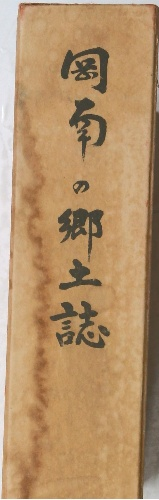 岡南の郷土誌